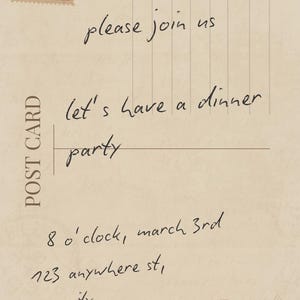 please join us
let's have a dinner
party
POST CARD
8 o'clock, march 3rd
123 anywhere st,